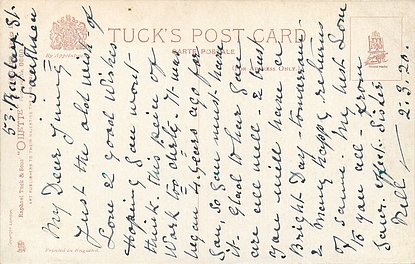 TUCK'S POST CARD
CARTE POSTALE
FOR ADDRESS ONLY
By Appointment
Raphael Tuck & Sons' "OILETTE"
Printed in England
53 Raglan St.
My Dear Jimmy
Just the old wish of
Love & good wishes
Hoping you wont
think this piece of
Work too dirty. It was
began 4 years ago for
you, so you must have
it. Glad to hear you
are all well - & trust
you will have a
Bright Day - tomorrow
& Many happy returns
of same. My best Love
to you all - from
Your Affect. Sister
Nell
2.9.20